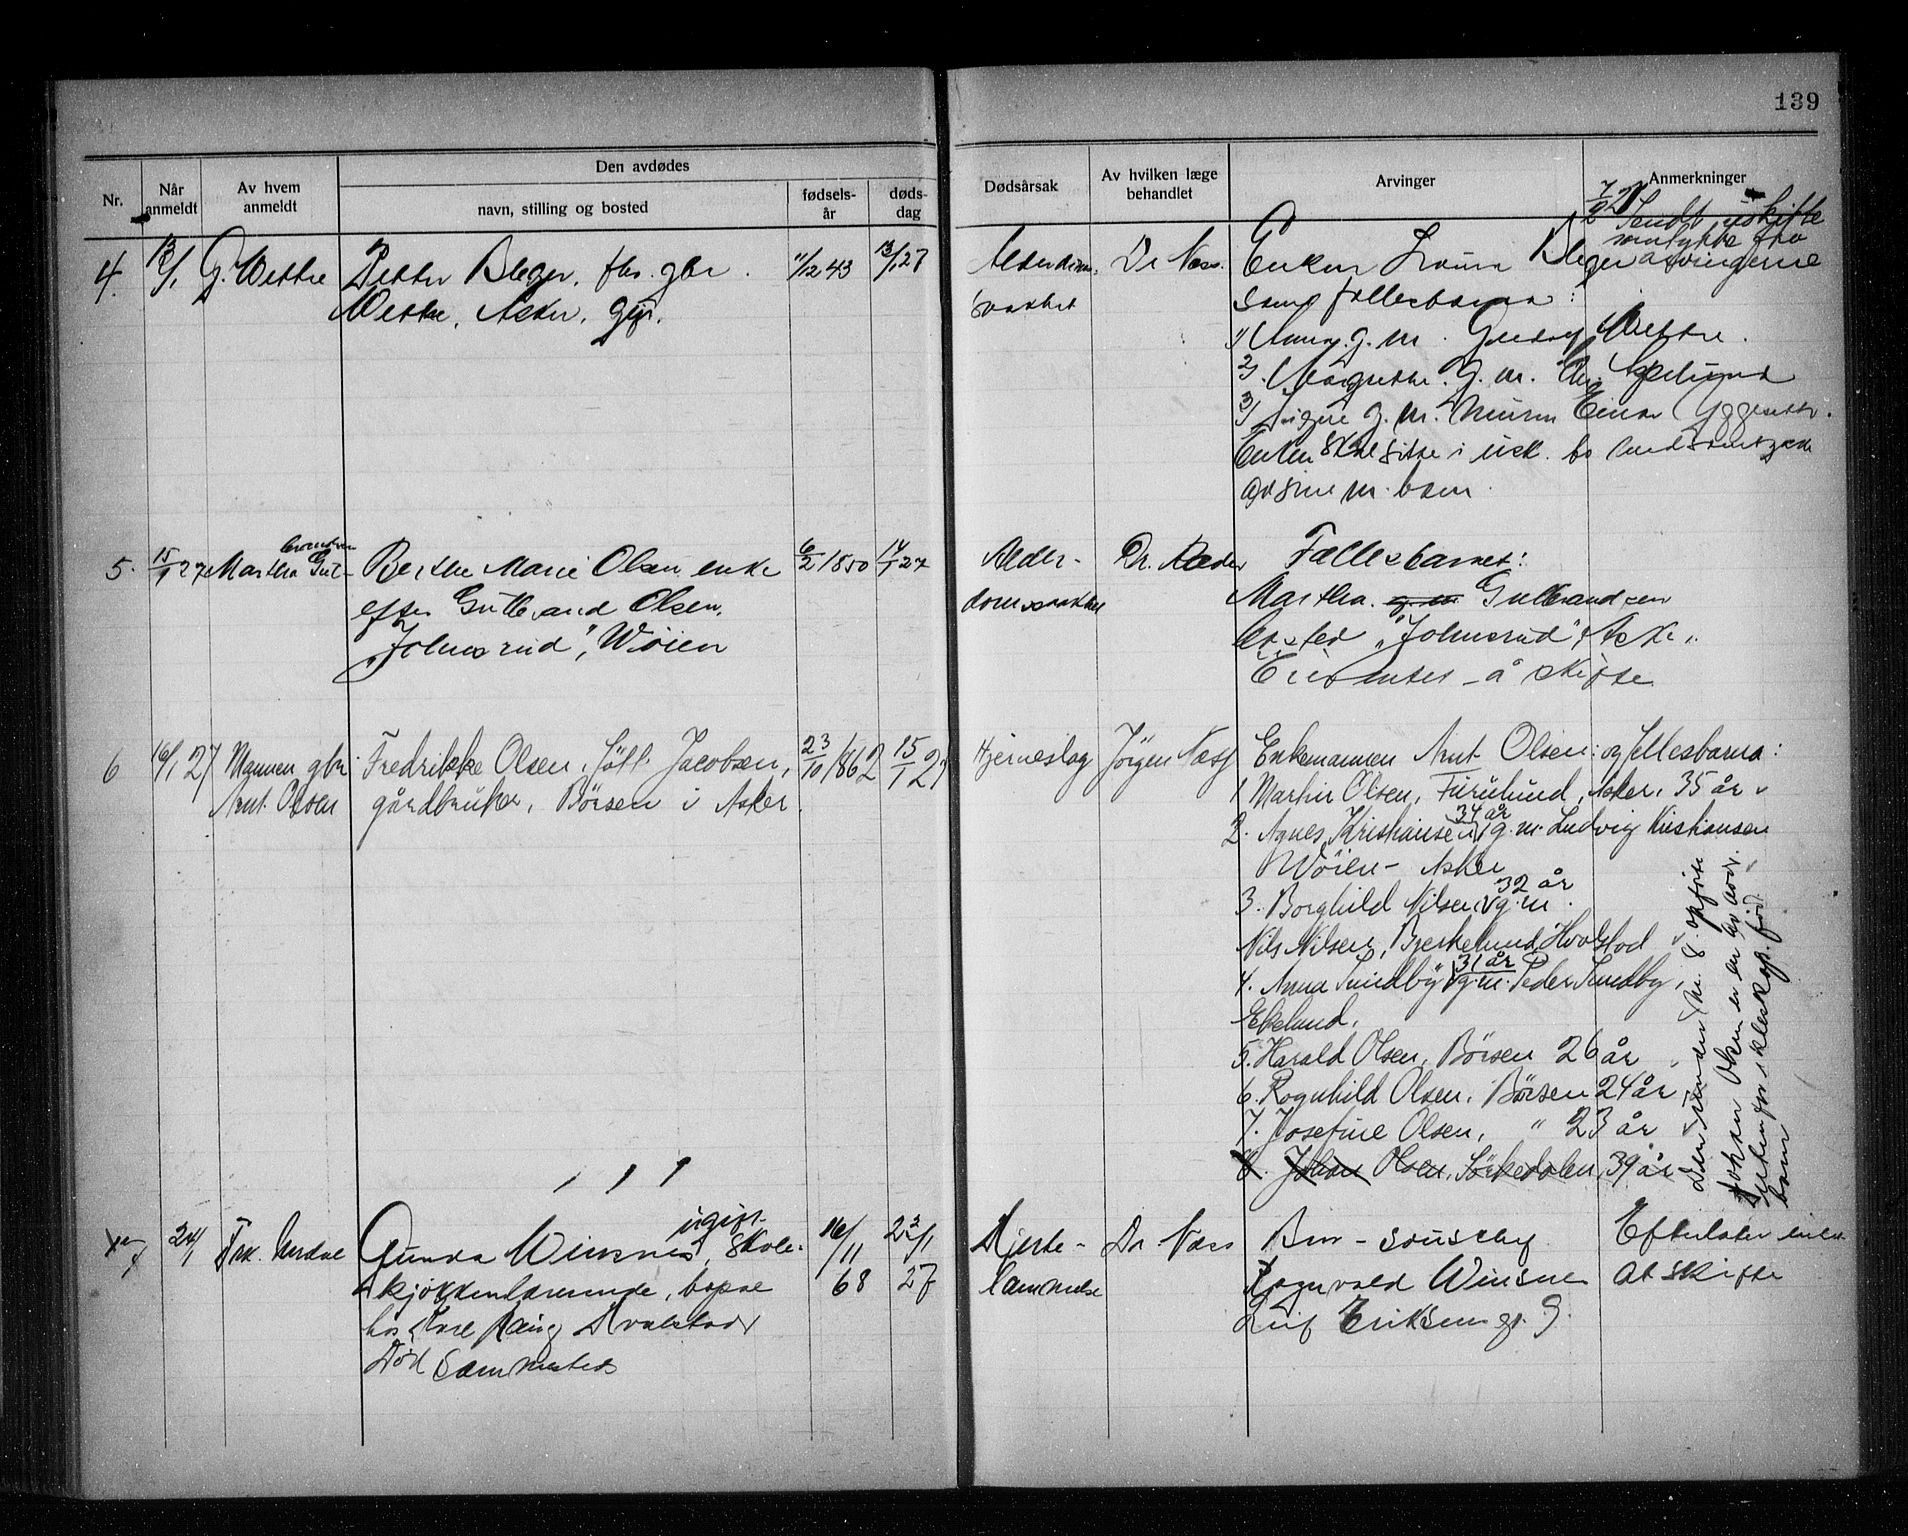 139
Nr.
Når anmeldt
Av hvem anmeldt
Den avdødes
navn, stilling og bosted
fødsels-år
døds-dag
Dødsårsak
Av hvilken læge behandlet
Arvinger
Anmerkninger
4. 13/1 G. Wettre
Petter Bleger, fhv. gbr.
Wettre, Asker, gift.
11/12 43
13/1 27
Alderdoms-
svakhet
Dr Næss.
Enken Laura Bleger
samt fellesbarna:
1/ Anna g. m. Gustav Wettre.
2/ Margrethe g. m. Chr. Apelund
3/ Signe g. m. Murer Einar Yggeseth.
Enken skal sitte i usk. bo med samtykke
av sine m. barn.
7/2 27 Sendt uskifte
samtykke fra
arvingerne
5. 15/1 27 Martha Gul-
brandsen
Berthe Marie Olsen enke
efter Gulbrand Olsen.
"Johnsrud", Wøien
6/2 1850
14/1 27
Alder-
domssvakhet
Dr. Ræder
Fællesbarnet:
Martha g. m. Gulbrandsen
bosted "Johnsrud", Asker.
Eiendes å skifte
6 16/1 27 Mannen gbr
Arnt Olsen
Fredrikke Olsen, født Jacobsen,
gårdbruker, Børsen i Asker.
23/10 1862
15/1 27
Hjerneslag
Jörgen Næss
Enkemannen Arnt Olsen og fellesbarna:
1 Martin Olsen, Furulund, Asker, 35 år
2. Agnes Kristiansen, 34 år g.m. Ludvig Kristiansen
Wöien - Asker
3. Borghild Nilsen, 32 år g.m.
Nils Nilsen, Bjerkelund, Hvalstad
4. Anna Sundby 31 år g.m. Peder Sundby,
Ekelund.
5. Harald Olsen, Börsen 26 år
6. Ragnhild Olsen, Börsen 24 år
7. Josefine Olsen, " 23 år
8. Johan Olsen, Sörkedalen, 39 år
Den under nr. 8. opførte
Johan Olsen er en av avd.
før ekteskap. född
barn
7 24/1 Frk.
Gunda Winsnes, ugift. Skole-
kjøkkenlærerinde, boppæl
hos Tore Haug Hvalstad
Død sammesteds
16/11 68
23/1 27
Hjerte-
lammelse
Dr Næss
Bror - søsken
Ragnvald Winsnes
Leif Eriksens g. 9.
Efterlater intet
at skifte